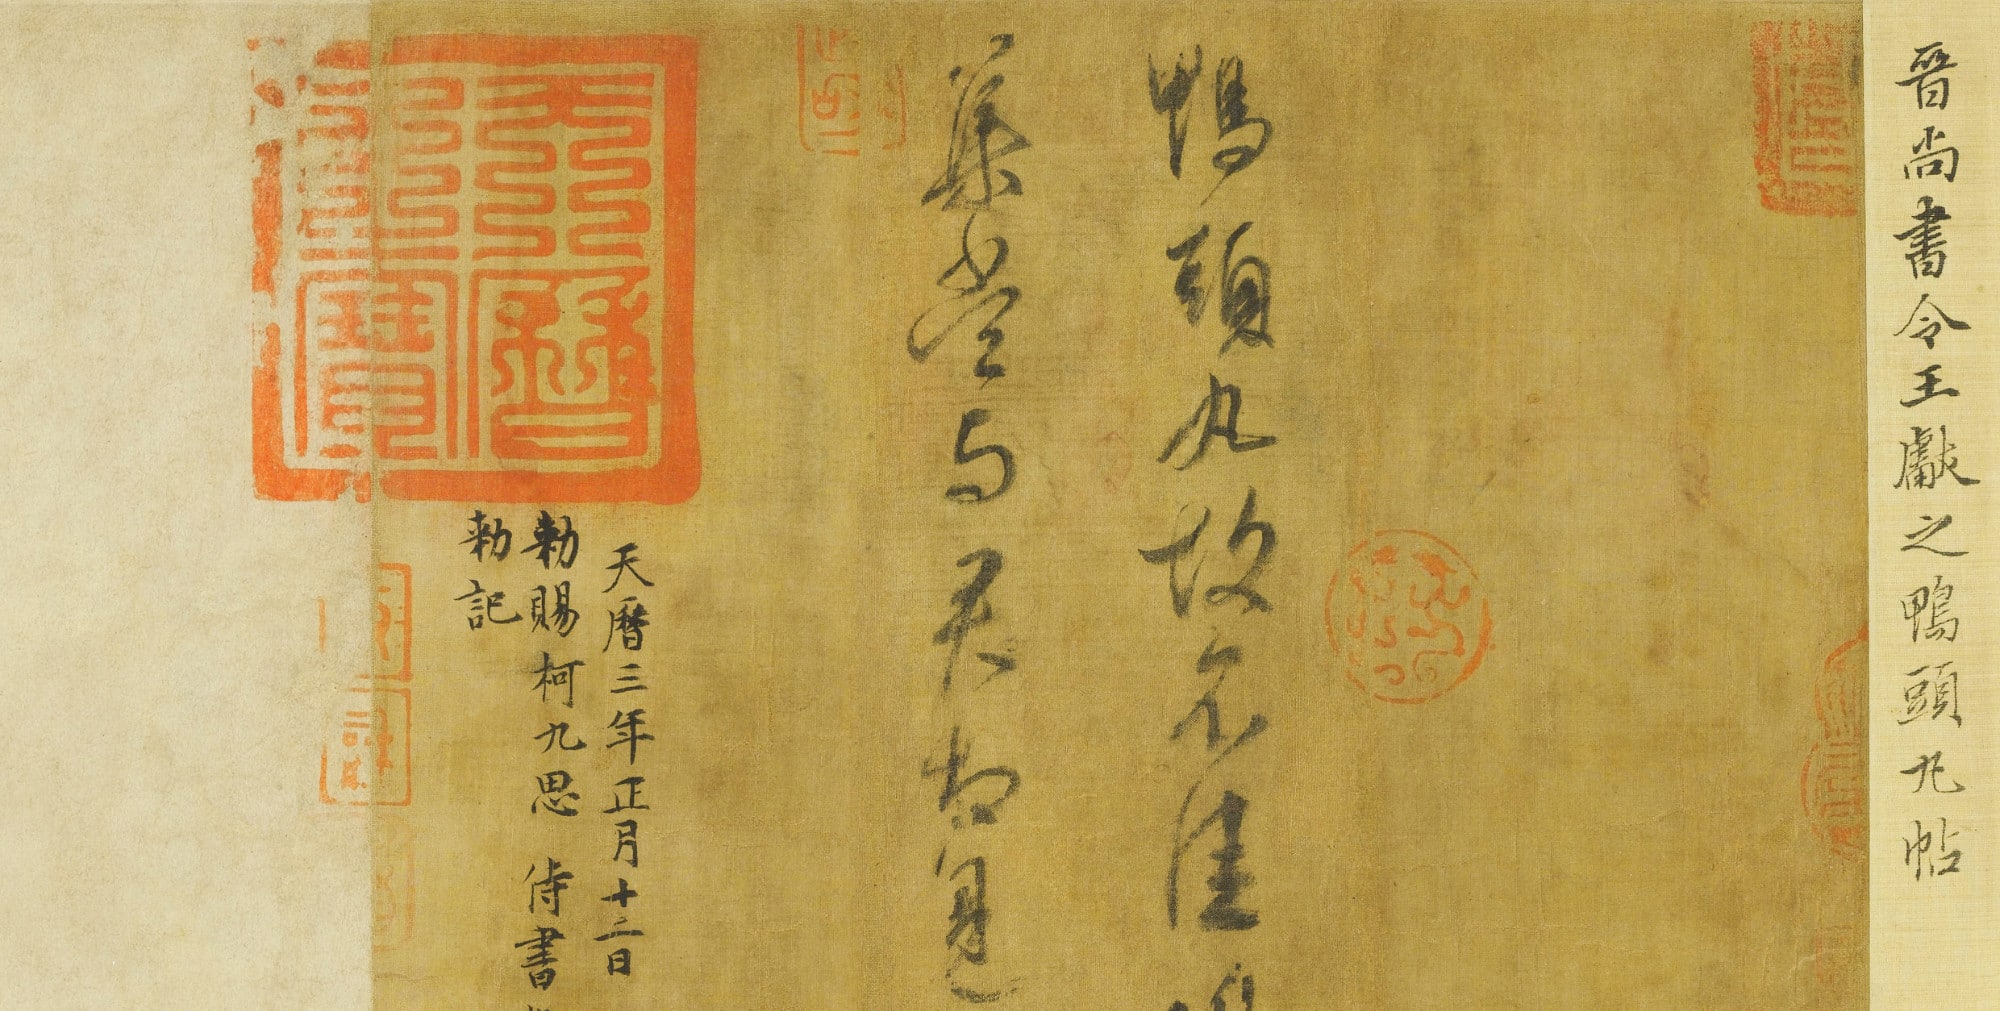 晋尚書令王獻之鴨頭丸帖
鴨頭丸故不佳
集當與君相見
天曆三年正月十二日
勑賜柯九思 侍書
勑記
天曆之寶